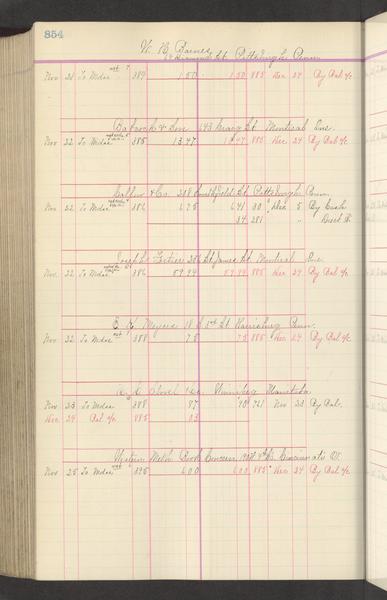 854
W. B. Barnes
Diamond St. Pittsburgh Penn.
Nov 21 To Mdse 389 1.50 1.50 885 Dec 24 By Bal a/c
Babcock & Son 643 Craig St. Montreal Que.
Nov 22 To Mdse 385 13.47 13.47 885 Dec 24 By Bal a/c
& Co. 318 Smithfield St. Pittsburgh Penn.
Nov 22 To Mdse 386 6.75 6.41 30 Dec 5 By Cash
34 281 " Disct
Joseph Fortier 256 St James St. Montreal Que.
Nov. 22 To Mdse 386 59.94 59.94 885 Dec 24 By Bal a/c
E. K. Meyers 3rd St. Harrisburg Penn.
Nov 22 To Mdse 388 75 75 885 Dec 24 By Bal a/c
& Co. Winnipeg Manitoba
Nov 23 To Mdse 388 97 90 721 Nov 23 By Bal.
Dec. 24 Bal a/c 885 03
Western Meth. Book Concern 190 W 4th St. Cincinnati O.
Nov 25 To Mdse 395 6.00 6.00 885 Dec 24 By Bal a/c